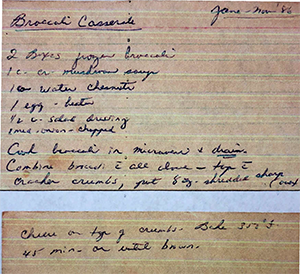 Broccoli Casserole
Jane - Nov '86
2 Boxes frozen broccoli
1 c. cr. mushroom soup
1 can water chesnuts
1 egg - beaten
1/2 c. salad dressing
1 med. onion - chopped
Cook broccoli in microwave & drain.
Combine brocoli c̄ all above - top c̄
cracker crumbs, put 8 oz shredded sharp
cheese on top of crumbs - Bake 350°F
45 min. or until brown.